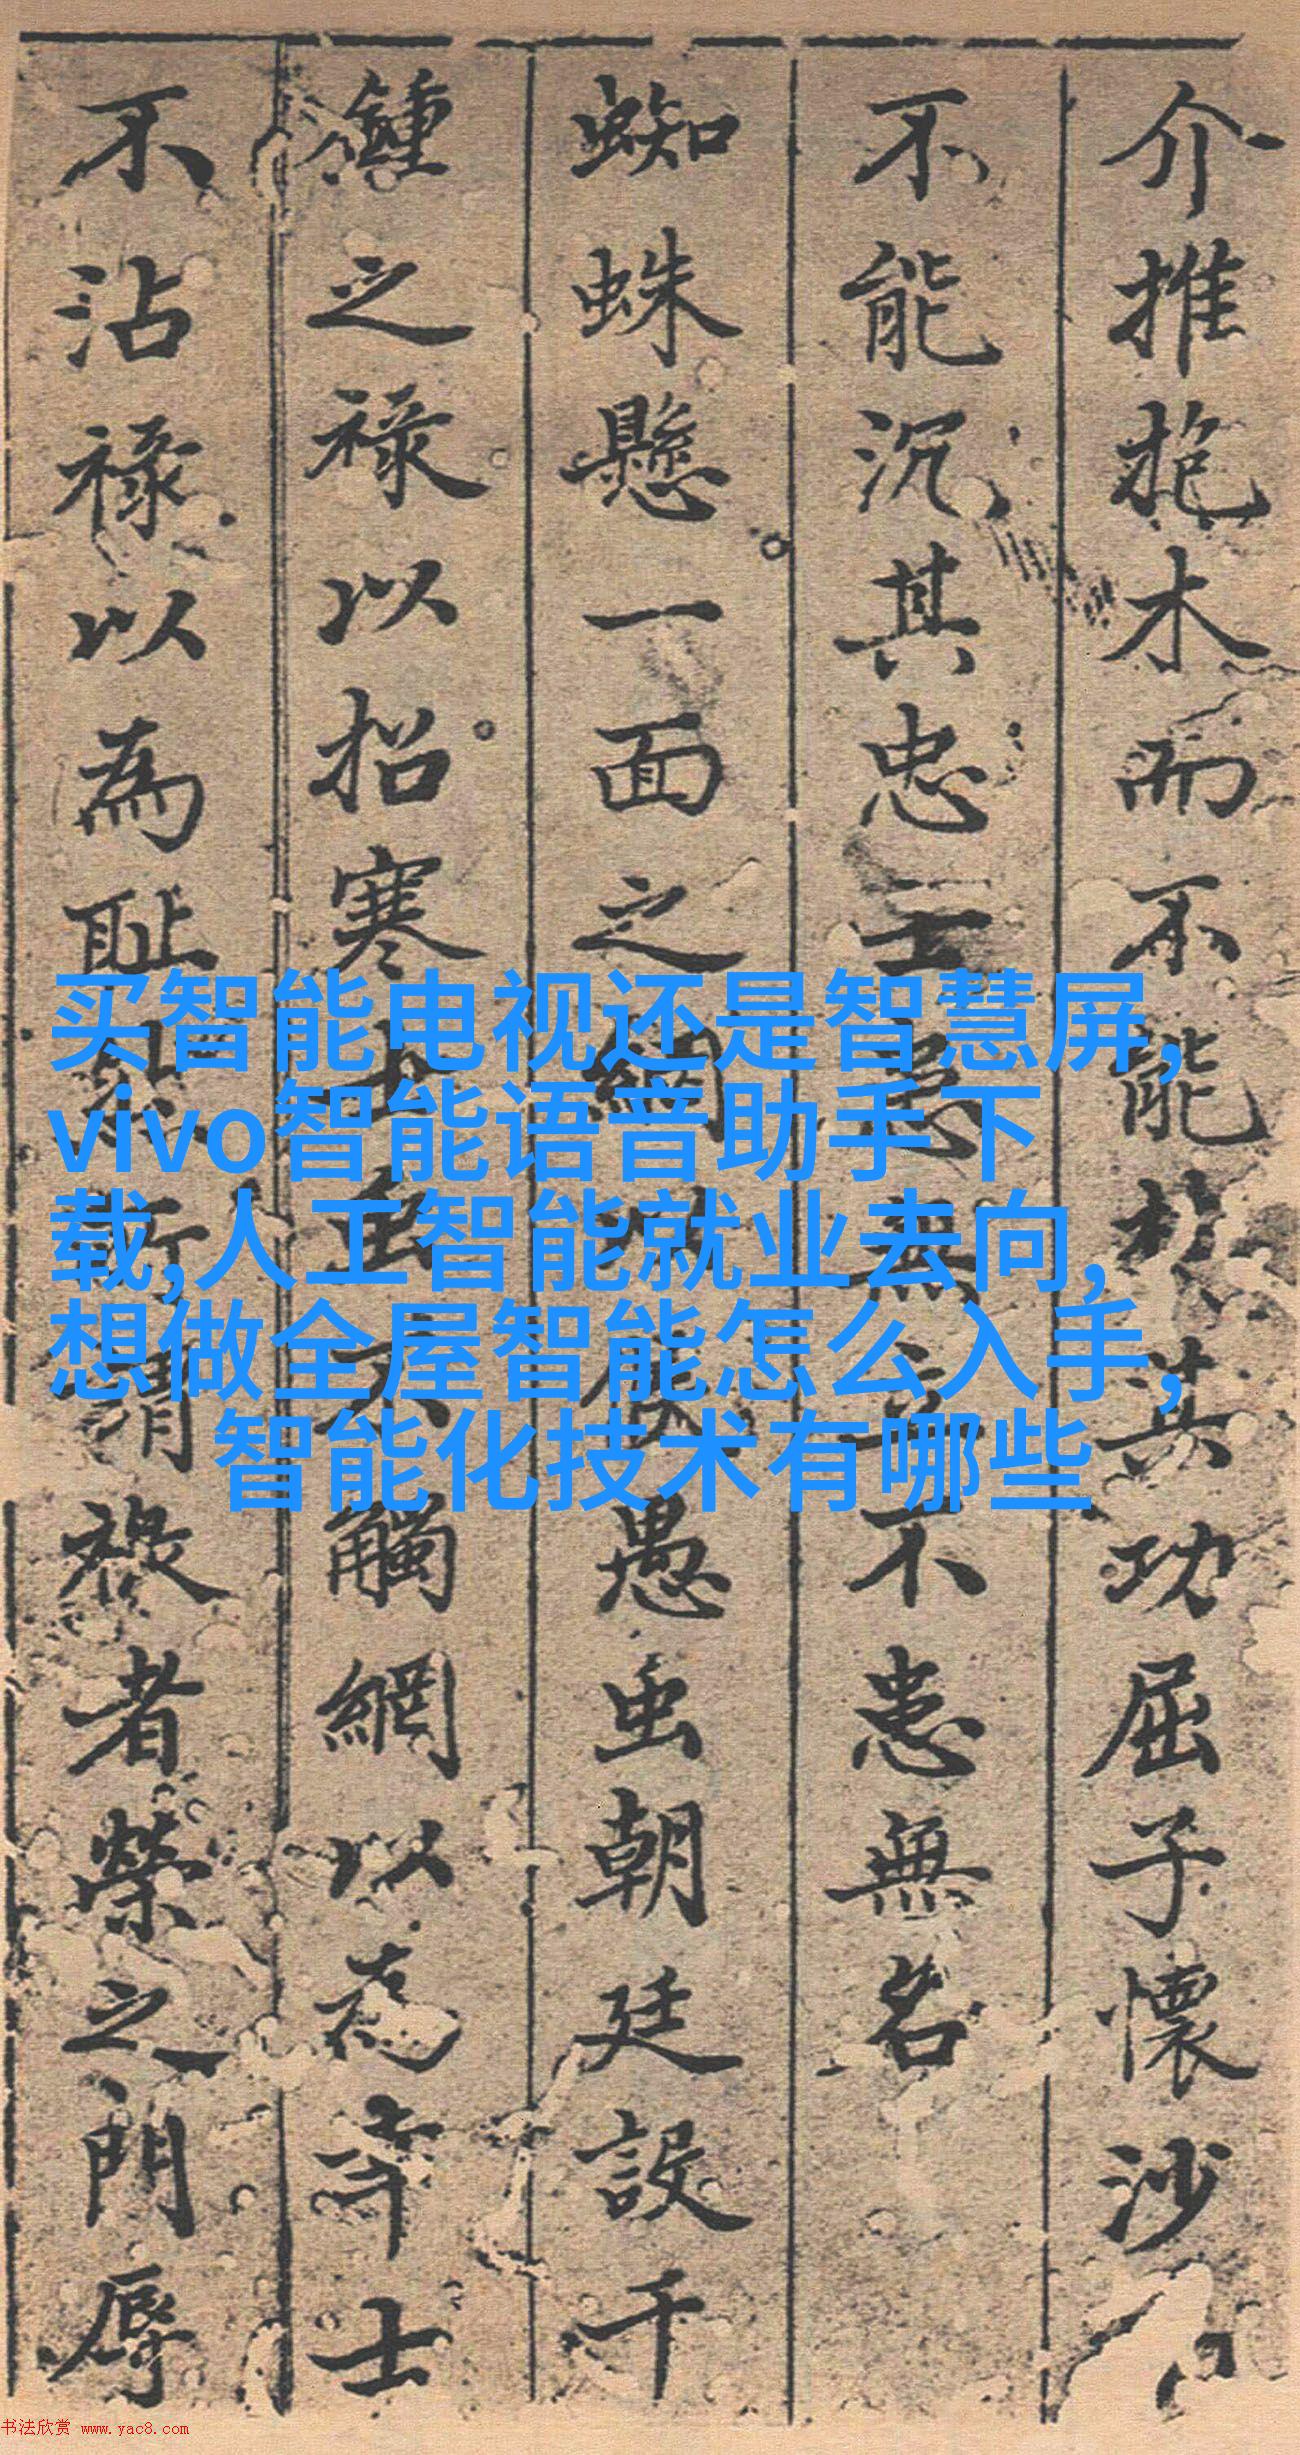 介推抱木而不能其功屈子懷沙
不能沉其忠士患無立不患無名
蜘蛛懸一面之網以愚虫朝廷設千
鍾之祿以招寒士虫不觸網以為士
不沾祿以為耻然所謂祿者榮之門辱
买智能电视还是智慧屏,
vivo智能语音助手下
载,人工智能就业去向,
想做全屋智能怎么入手,
智能化技术有哪些
书法欣赏 www.yac8.com